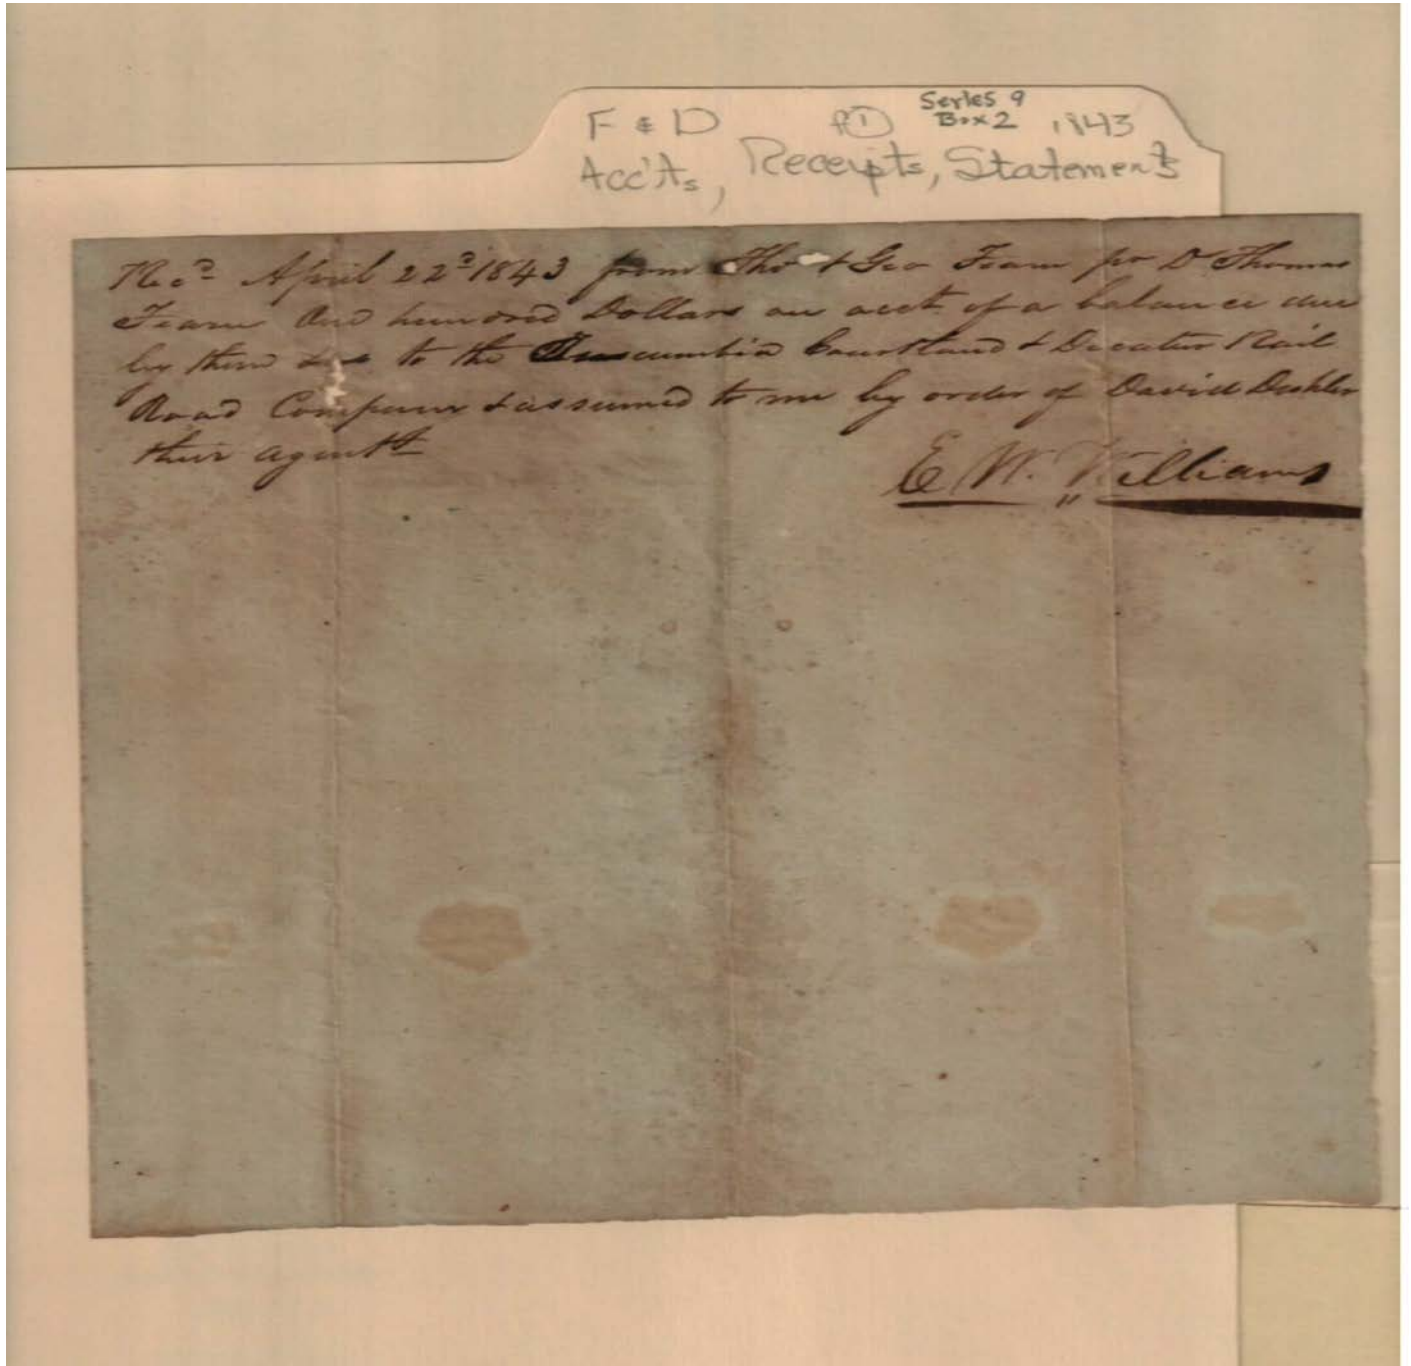 F & D ① Series 9 Box 2 1843
Acc'ts, Receipts, Statements
Recd April 22d 1843 from Tho & Geo Fearn pr Dr Thomas
Fearn One hundred Dollars on acct. of a balance due
by them to the Tuscumbia Courtland & Decatur Rail
Road Company & assumed to me by order of David Deshler
their agentt
E W. Williams